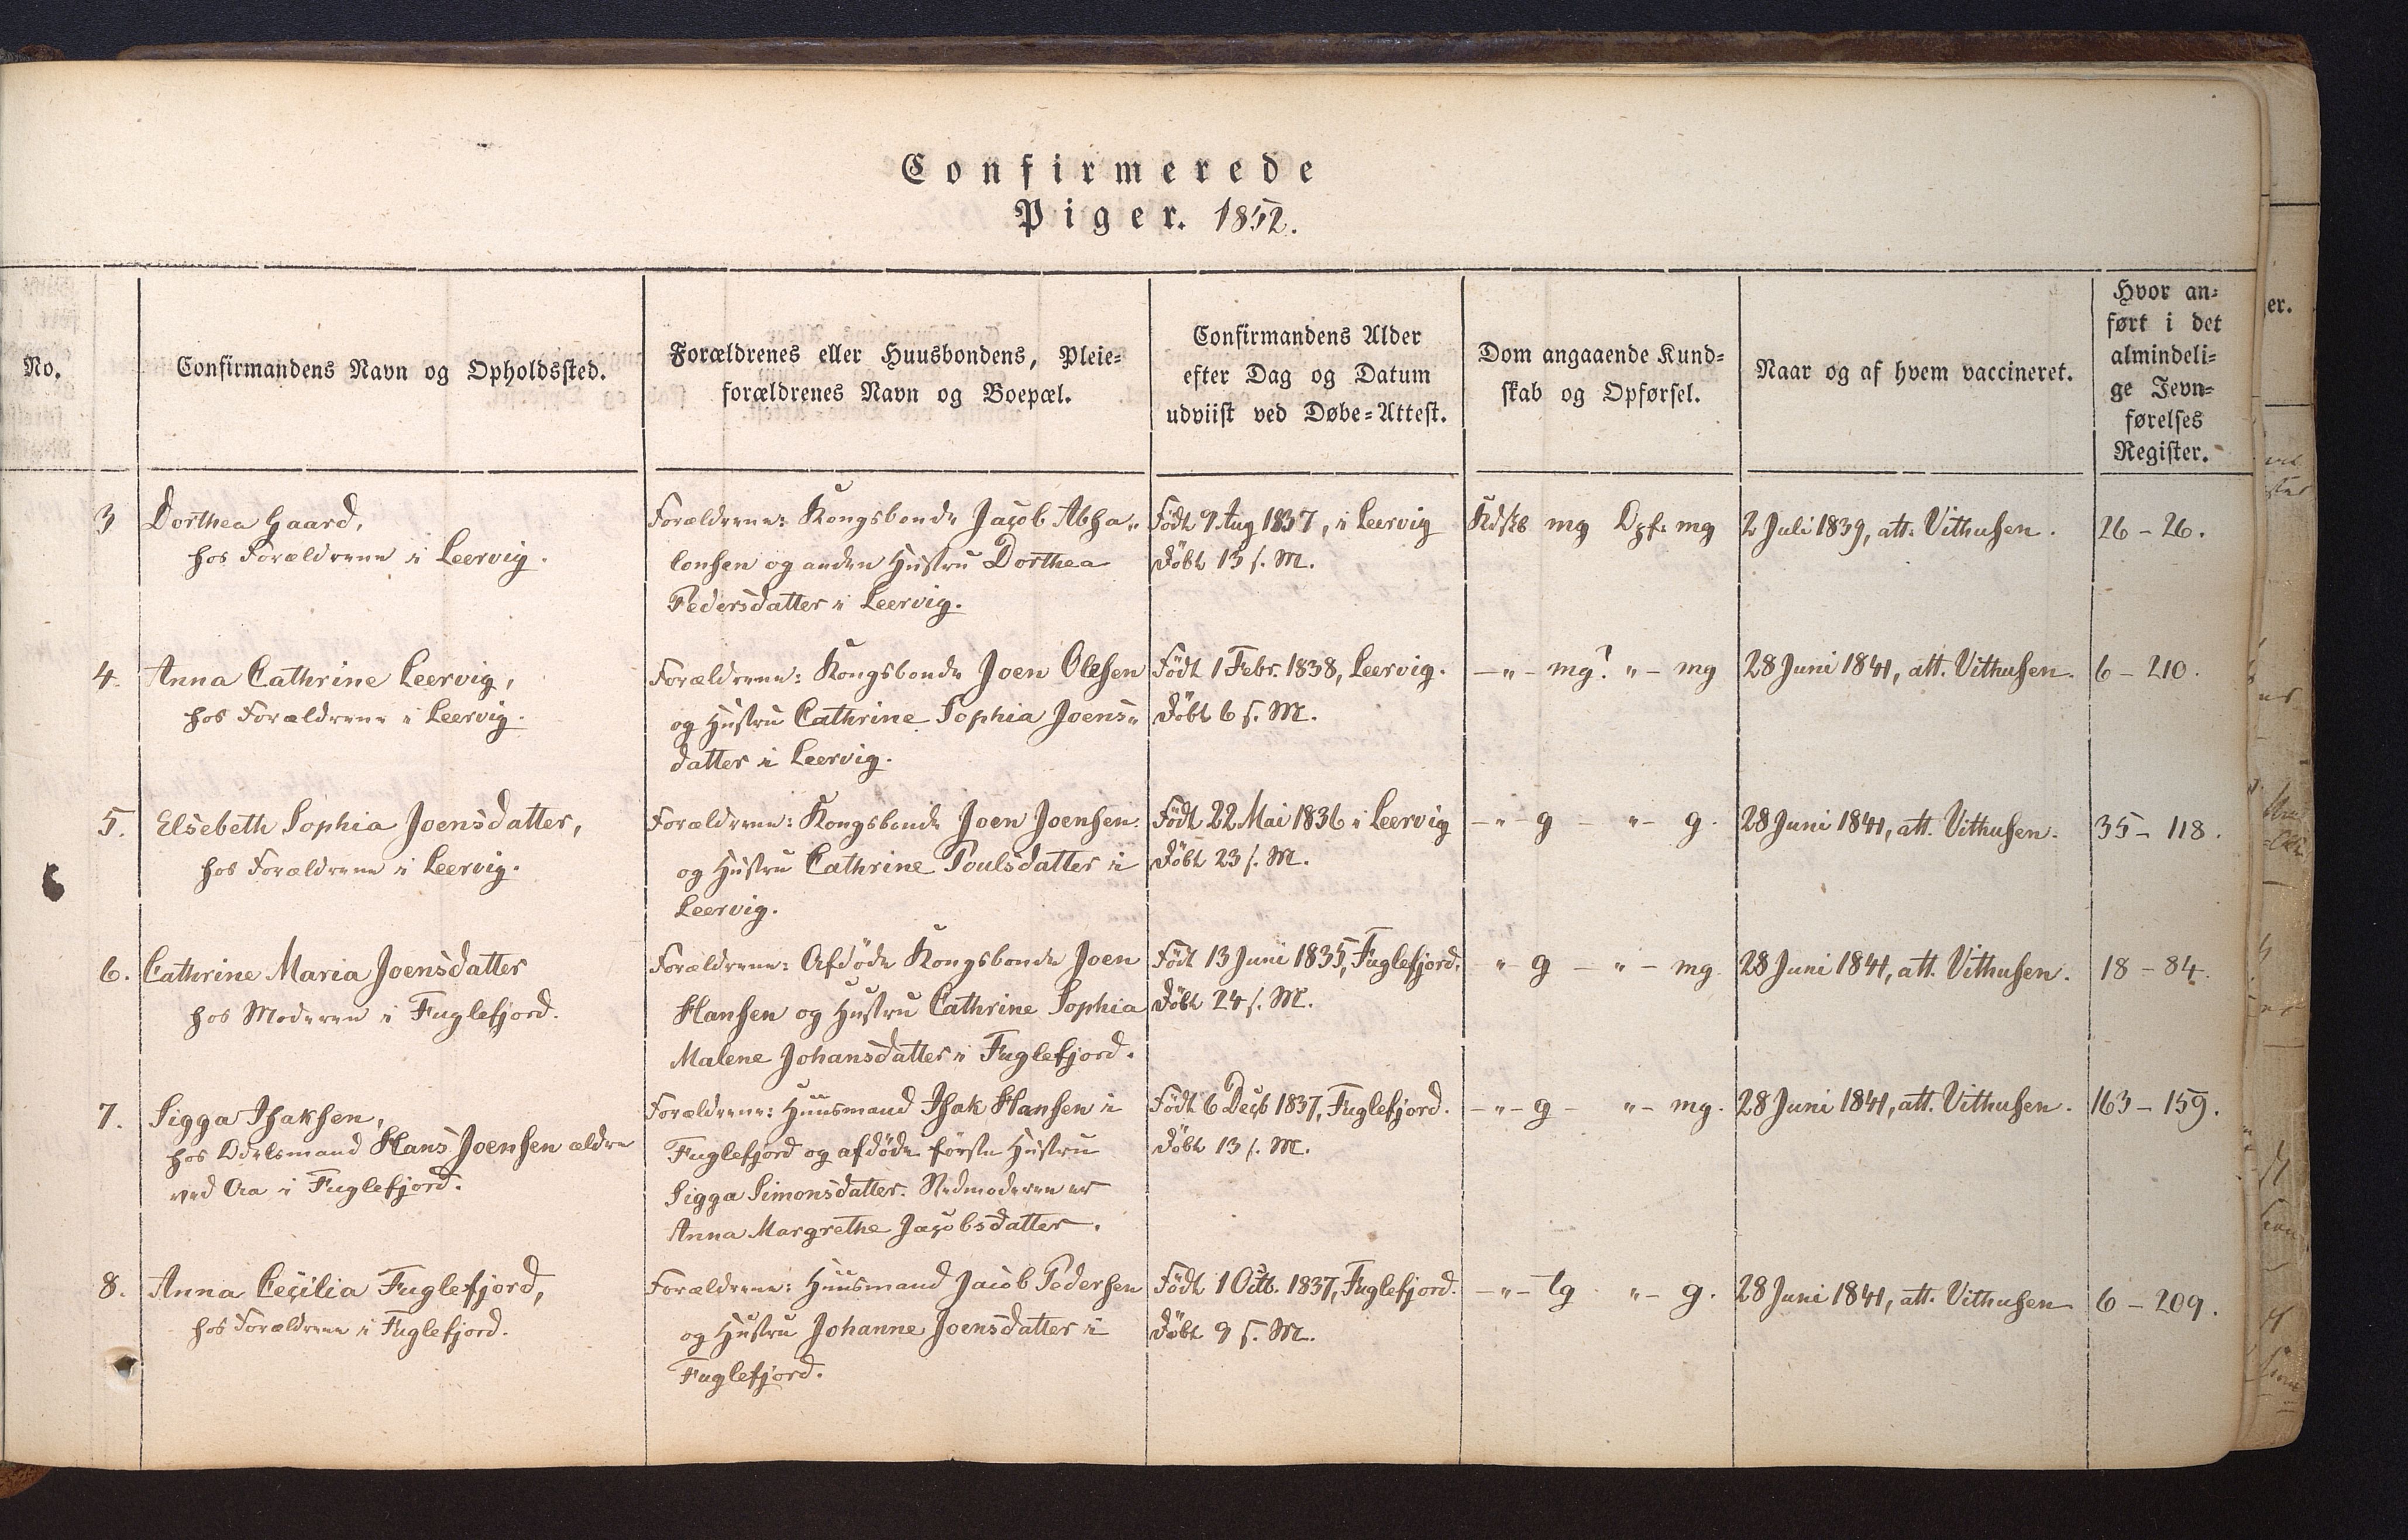 Confirmerede
Piger. 1852.
No.
Confirmandens Navn og Opholdssted.
Forældrenes eller Huusbondens, Pleie-
forældrenes Navn og Boepæl.
Confirmandens Alder
efter Dag og Datum
udviist ved Døbe-Attest.
Dom angaaende Kund-
skab og Opførsel.
Naar og af hvem vaccineret.
Hvor an-
ført i det
almindeli-
ge Jevn-
førelses
Register.
3
Dorthea Gaard,
hos Forældrene i Leervig.
Forældrene: Kongsbonde Jacob Absa-
lonsen og anden Hustru Dorthea
Pedersdatter i Leervig.
Født 9 Aug 1837, i Leervig
Døbt 13 s. M.
Kdskb mg Opf: mg
2 Juli 1839, att. Vithusen.
26 - 26.
4.
Anna Cathrine Leervig,
hos Forældrene i Leervig.
Forældrene: Kongsbonde Joen Olesen
og Hustru Cathrine Sophia Joens-
datter i Leervig.
Født 1 Febr. 1838, Leervig.
Døbt 6 s. M.
-"- mg? "- mg
28 Juni 1841, att. Vithusen.
6 - 210.
5.
Elsebeth Sophia Joensdatter,
hos Forældrene i Leervig.
Forældrene: Kongsbonde Joen Joensen
og Hustru Cathrine Poulsdatter i
Leervig.
Født 22 Mai 1836 i Leervig
Døbt 23 s. M.
-"- g - "- g.
28 Juni 1841, att. Vithusen.
35 - 118.
6.
Cathrine Maria Joensdatter
hos Moderen i Fuglefjord.
Forældrene: Afdøde Kongsbonde Joen
Hansen og Hustru Cathrine Sophia
Malene Johansdatter i Fuglefjord.
Født 13 Juni 1835, Fuglefjord.
Døbt 24 s. M.
"- g - "- mg.
28 Juni 1841, att. Vithusen.
18 - 84.
7.
Sigga Isaksen,
hos Odelsmand Hans Joensen ældre
ved Aa i Fuglefjord.
Forældrene: Huusmand Isak Hansen i
Fuglefjord og afdøde første Hustru
Sigga Simonsdatter. Stedmoderen er
Anna Margrethe Jacobsdatter.
Født 6 Decb 1837, Fuglefjord.
Døbt 13 s. M.
-"- g - "- mg.
28 Juni 1841, att. Vithusen.
163 - 159.
8.
Anna Cecilia Fuglefjord,
hos Forældrene i Fuglefjord.
Forældrene: Huusmand Jacob Pedersen
og Hustru Johanne Joensdatter i
Fuglefjord.
Født 1 Octb. 1837, Fuglefjord.
Døbt 9 s. M.
-"- tg "- g.
28 Juni 1841, att. Vithusen
6 - 209.